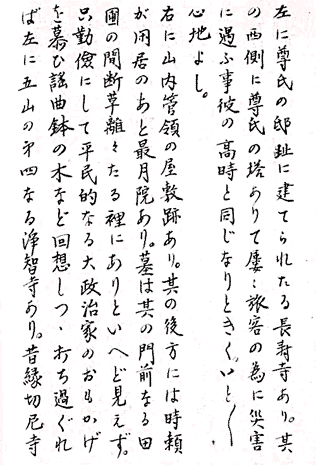 左に尊氏の邸趾に建てられたる長寿寺あり。其
の西側に尊氏の塔ありて屡〻旅客の為に災害
に遇ふ事彼の高時と同じなりときく、いと〱
心地よし。
右に山内管領の屋敷跡あり。其の後方には時頼
が閑居のあと最月院あり。墓は其の門前なる田
圃の間断草離々たる裡にありといへど見えず。
只勤儉にして平民的なる大政治家のおもかげ
を慕ひ謡曲鉢の木など回想しつゝ打ち過ぐれ
ば左に五山の第四なる浄智寺あり。昔縁切尼寺